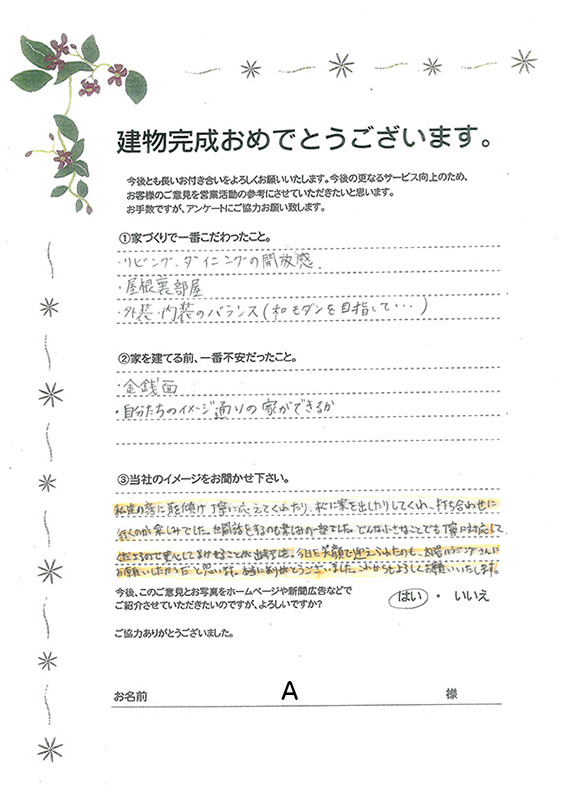 建物完成おめでとうございます。
今後とも長いお付き合いをよろしくお願いいたします。今後の更なるサービス向上のため、
お客様のご意見を営業活動の参考にさせていただきたいと思います。
お手数ですが、アンケートにご協力お願い致します。
①家づくりで一番こだわったこと。
・リビング、ダイニングの開放感、
・屋根裏部屋
・外装・内装のバランス(和モダンを目指して・・・)
②家を建てる前、一番不安だったこと。
・金銭面
・自分たちのイメージ通りの家ができるか
③当社のイメージをお聞かせ下さい。
私達の話に耳を傾け丁寧に応えてくれたり、私に案を出したりしてくれ、打ち合わせに
行くのが楽しみでした。世間話をするのも楽しみの一部でした。どんな小さなことでも丁寧に対応して
くださるので安心してまかせることが出来ました。今日を笑顔で迎えられたのも、太陽ハウジングさんに
お願いしたからだと思います。本当にありがとうございました。これからもよろしくお願いいたします。
今後、このご意見とお写真をホームページや新聞広告などで
ご紹介させていただきたいのですが、よろしいですか?
はい ・ いいえ
ご協力ありがとうございました。
お名前 A 様